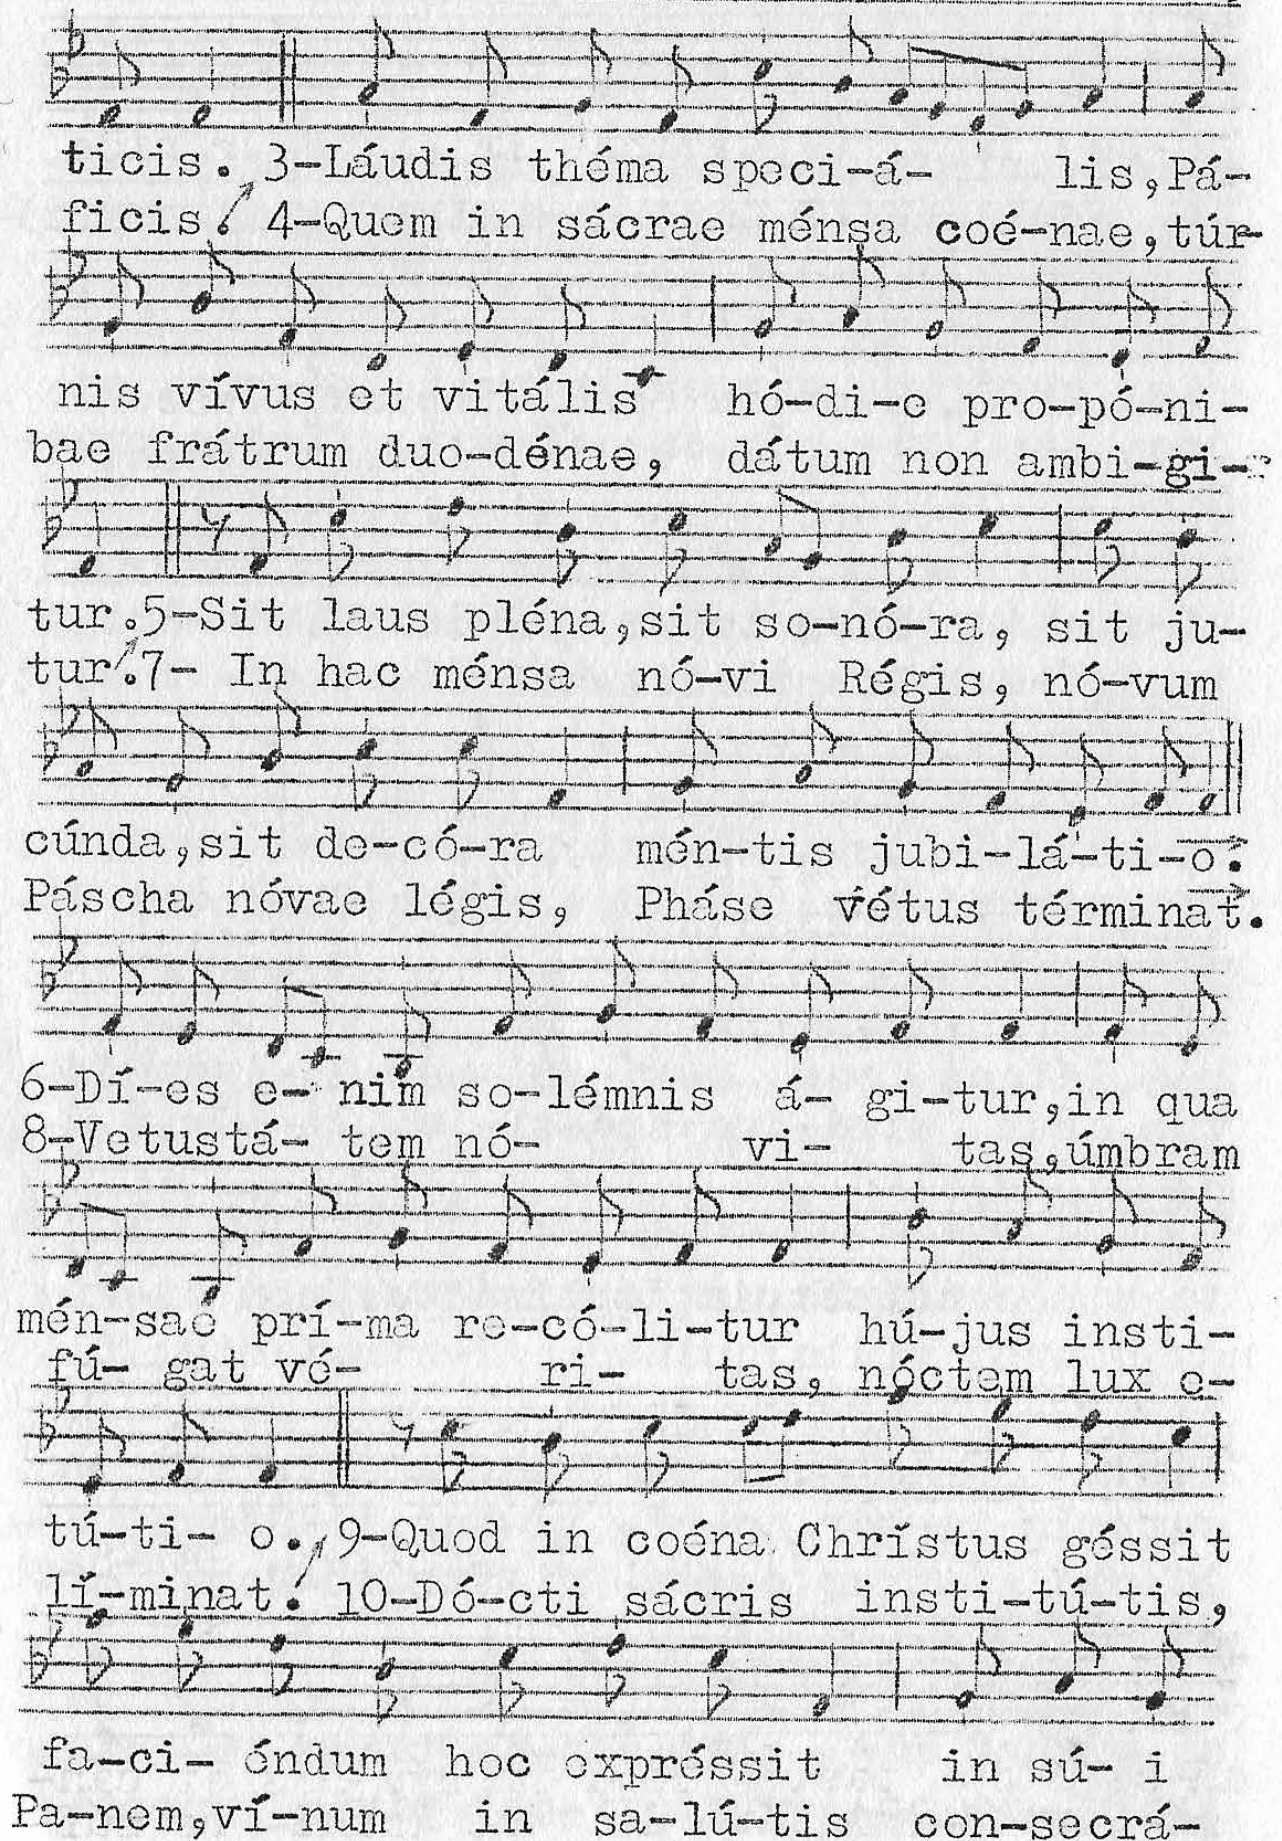 ticis. 3-Láudis théma speci-á- lis,Pá-
ficis. 4-Quem in sácrae ménsa coé-nae,túr-
nis vívus et vitális hó-di-e pro-pó-ni-
bae frátrum duo-dénae, dátum non ambi-gi-
tur.5-Sit laus pléna,sit so-nó-ra, sit ju-
tur.7- In hac ménsa nó-vi Régis, nó-vum
cúnda,sit de-có-ra mén-tis jubi-lá-ti-o.
Páscha nóvae légis, Pháse vétus términat.
6-Dí-es e- nim so-lémnis á- gi-tur,in qua
8-Vetustá- tem nó- vi- tas,úmbram
mén-sae prí-ma re-có-li-tur hú-jus insti-
fú- gat vé- ri- tas, nóctem lux e-
tú-ti- o. 9-Quod in coéna Chrístus géssit
lí-minat. 10-Dó-cti sácris insti-tú-tis,
fa-ci- éndum hoc expréssit in sú- i
Pa-nem,ví-num in sa-lú-tis con-secrá-